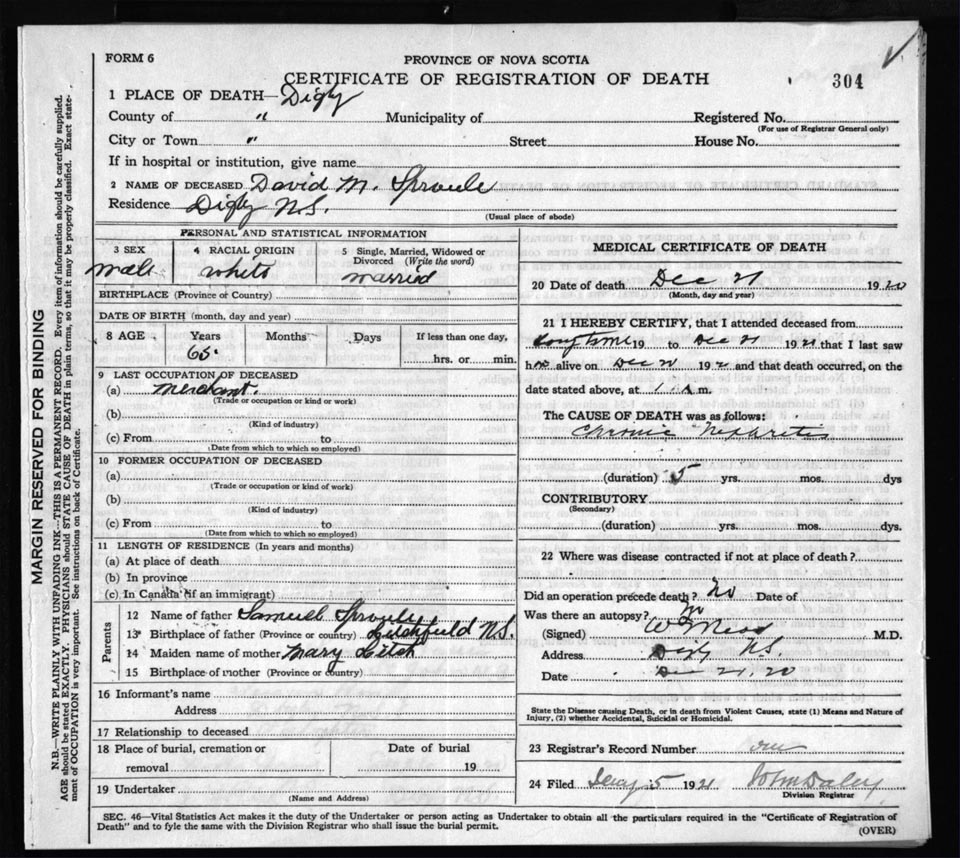 FORM 6
PROVINCE OF NOVA SCOTIA
CERTIFICATE OF REGISTRATION OF DEATH
304
1 PLACE OF DEATH—Digby
County of " Municipality of Registered No.
(For use of Registrar General only)
City or Town " Street House No.
If in hospital or institution, give name
2 NAME OF DECEASED David M. Sproule
Residence Digby N.S.
(Usual place of abode)
PERSONAL AND STATISTICAL INFORMATION
3 SEX 4 RACIAL ORIGIN 5 Single, Married, Widowed or Divorced (Write the word)
male white married
BIRTHPLACE (Province or Country)
DATE OF BIRTH (month, day and year)
8 AGE Years Months Days If less than one day,
65 hrs. or min.
9 LAST OCCUPATION OF DECEASED
(a) merchant.
(Trade or occupation or kind or work)
(b)
(Kind of industry)
(c) From to
(Date from which to which so employed)
10 FORMER OCCUPATION OF DECEASED
(a)
(Trade or occupation or kind of work)
(b)
(Kind of industry)
(c) From to
(Date from which to which so employed)
11 LENGTH OF RESIDENCE (In years and months)
(a) At place of death
(b) In province
(c) In Canada (if an immigrant)
Parents
12 Name of father Samuel Sproule
13 Birthplace of father (Province or country) Litchfield N.S.
14 Maiden name of mother Mary Litch
15 Birthplace of mother (Province or country)
16 Informant's name
Address
17 Relationship to deceased
18 Place of burial, cremation or removal Date of burial 19
19 Undertaker
(Name and Address)
MEDICAL CERTIFICATE OF DEATH
20 Date of death Dec 21 1920
(Month, day and year)
21 I HEREBY CERTIFY, that I attended deceased from
long time 19 to Dec 21 19 that I last saw
h alive on Dec 19 and that death occurred, on the
date stated above, at m.
The CAUSE OF DEATH was as follows:
Chronic Nephritis
(duration) 5 yrs. mos. dys
CONTRIBUTORY
(Secondary)
(duration) yrs. mos. dys.
22 Where was disease contracted if not at place of death?
Did an operation precede death? No Date of
Was there an autopsy? no
(Signed) M.D.
Address Digby N.S.
Date Dec 21, 20
State the Disease causing Death, or in death from Violent Causes, state (1) Means and Nature of
Injury, (2) whether Accidental, Suicidal or Homicidal.
23 Registrar's Record Number
24 Filed 5 1921 John Daley
Division Registrar
SEC. 46—Vital Statistics Act makes it the duty of the Undertaker or person acting as Undertaker to obtain all the particulars required in the "Certificate of Registration of
Death" and to fyle the same with the Division Registrar who shall issue the burial permit.
(OVER)
MARGIN RESERVED FOR BINDING
N.B.—WRITE PLAINLY WITH UNFADING INK—THIS IS A PERMANENT RECORD. Every item of information should be carefully supplied.
AGE should be stated EXACTLY. PHYSICIANS should STATE CAUSE OF DEATH in plain terms, so that it may be properly classified. Exact state-
ment of OCCUPATION is very important. See instructions on back of Certificate.